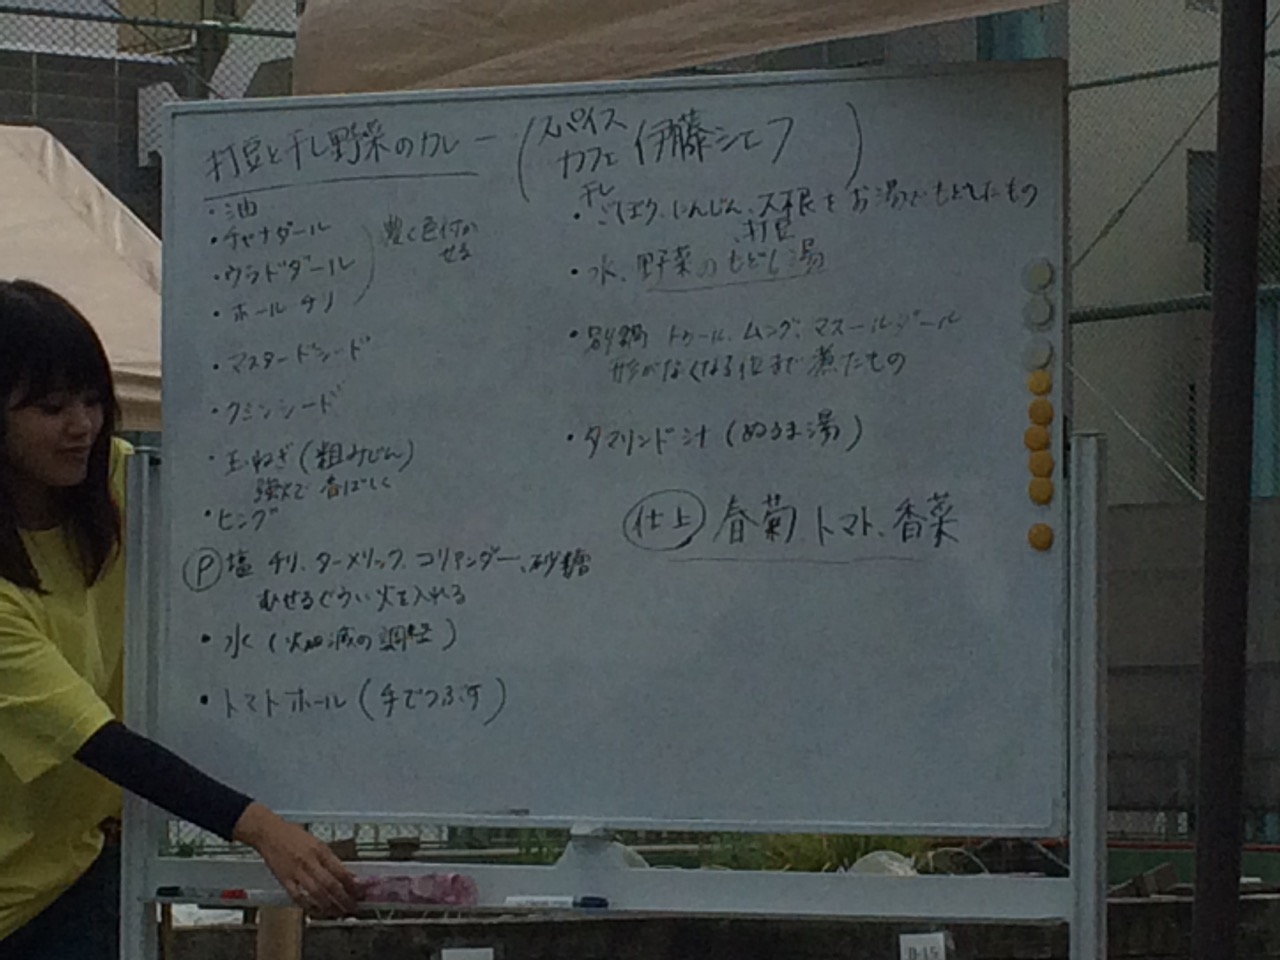 打豆と干し野菜のカレー (スパイスカフェ 伊藤シェフ)
・油
・チャナダール
・ウラドダール
・ホールチリ
色付かせる
・マスタードシード
・クミンシード
・玉ねぎ(粗みじん)
強火で香ばしく
・ヒング
Ⓟ塩 チリ、ターメリック、コリアンダー、砂糖
むせるぐらい火を入れる
・水(火加減の調整)
・トマトホール(手でつぶす)
干し
・ごぼう、にんじん、大根をお湯でもどしたもの
、打豆
・水、野菜のもどし湯
・別鍋 トゥール、ムング、マスールダール
形がなくなる位まで煮たもの
・タマリンド汁(ぬるま湯)
仕上 春菊、トマト、香菜
D-15